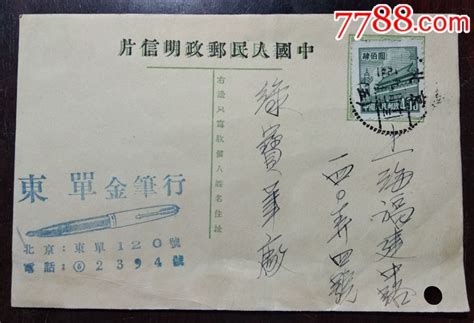 7788.com
中國人民郵政明信片
肆佰圓
400
右邊只寫收信人姓名住址
上海福建中路
一四〇弄四號
綠寶筆廠
東單金筆行
北京：東單120號
電話：⑤2394號